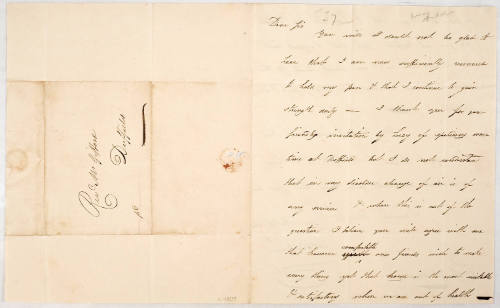 27
Dear Sir
You will I doubt not be glad to
hear that I am now sufficiently recovered
to hold my pen & that I continue to gain
strength daily — I thank you for your
invitation by Lucy of spending some
time at Duffield but I do not
that in my disorder change of air is of
any service & when this is out of the
question I believe you will agree with me
that however comfortable our friends wish to make
every thing yet that home is the most suitable
& satisfactory when we are out of health —
Revd Mr
Duffield